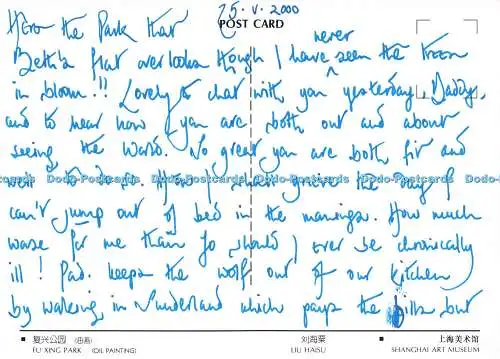 25.V.2000
POST CARD
Here the Park that
never
Beth's flat overlooks though I have seen the trees
in bloom!! Lovely to chat with you yesterday, Daddy,
and to hear how you are both out and about
seeing the World. So great you are both fit and
well
Dodo-Postcards Dodo-Postcards Dodo-Postcards Dodo-Postcards Dodo-Postcards
can't jump out of bed in the mornings. How much
worse for me than you should I ever be chronically
ill! Pad. keeps the wolf out of our kitchen
by walking in which pays the bills but
复兴公园 (油画)
FU XING PARK (OIL PAINTING)
刘海粟
LIU HAISU
上海美术馆
SHANGHAI ART MUSEUM